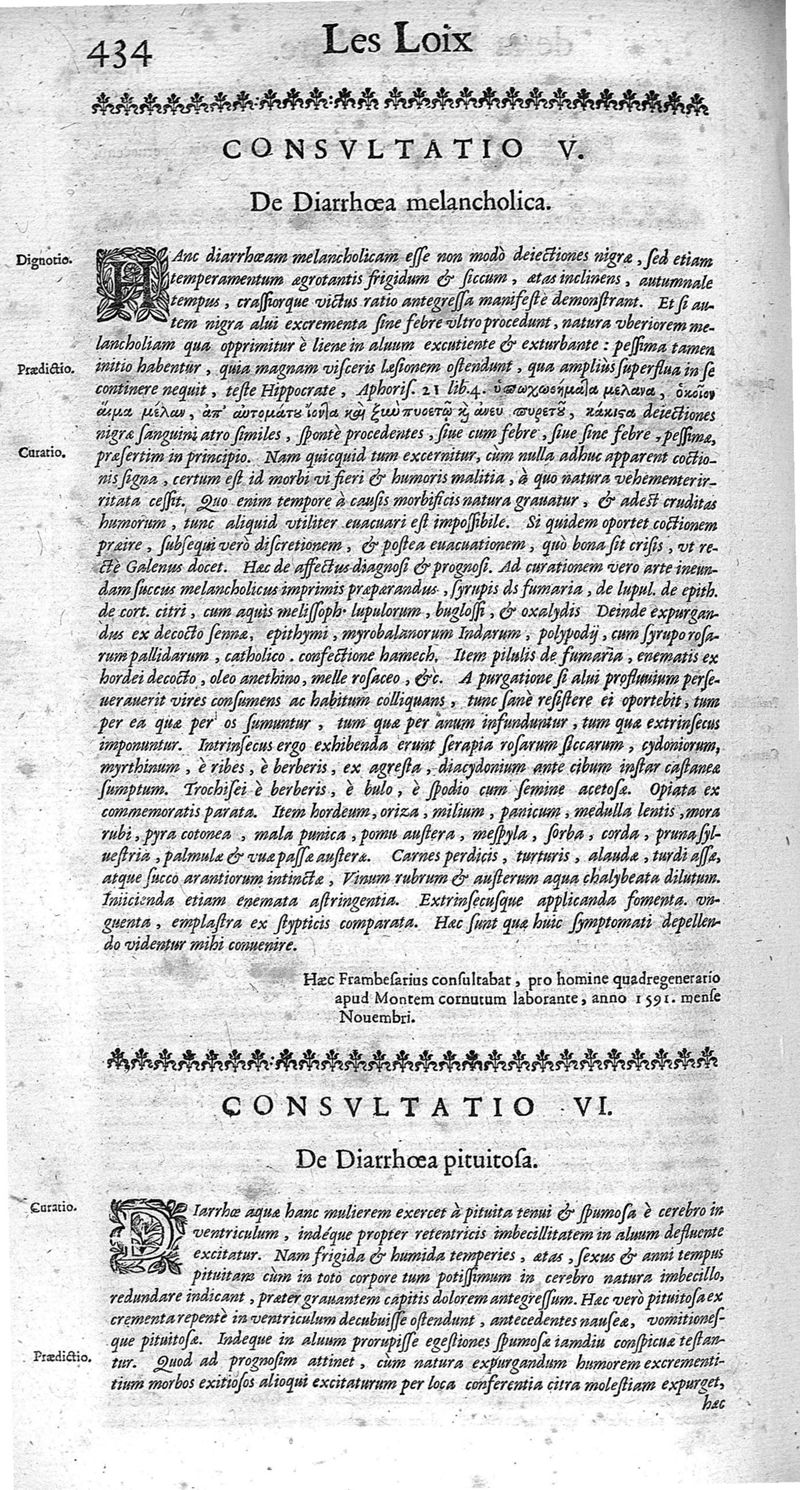 434
Les Loix
CONSVLTATIO V.
De Diarrhœa melancholica.
Dignotio.
HAnc diarrhœam melancholicam esse non modò deiectiones nigræ, sed etiam
temperamentum ægrotantis frigidum & siccum, ætas inclinens, autumnale
tempus, crassiorque victus ratio antegressa manifestè demonstrant. Et si au-
tem nigra alui excrementa sine febre vltro procedunt, natura vberiorem me-
lancholiam qua opprimitur è liene in aluum excutiente & exturbante: pessima tamen
Prædictio.
initio habentur, quia magnam visceris læsionem ostendunt, qua amplius superflua in se
continere nequit, teste Hippocrate, Aphoris. 21 lib. 4. μελανα, ὁκοῖον
αιμα μέλαν, ἀπ' αυτομάτου ἰοντα καὶ ξυν πυρετῶ κ ἀνευ πυρετου, κάκιστα deiectiones
nigræ sanguini atro similes, spontè procedentes, siue cum febre, siue sine febre, pessimæ,
Curatio.
præsertim in principio. Nam quicquid tum excernitur, cùm nulla adhuc apparent coctio-
nis signa, certum est id morbi vi fieri & humoris malitia, à quo natura vehementer ir-
ritata cessit. Quo enim tempore à causis morbificis natura grauatur, & adest cruditas
humorum, tunc aliquid vtiliter euacuari est impossibile. Si quidem oportet coctionem
præire, subsequi verò discretionem, & postea euacuationem, quò bona sit crisis, vt re-
ctè Galenus docet. Hæc de affectus diagnosi & prognosi. Ad curationem vero arte ineun-
dam succus melancholicus imprimis præparandus, syrupis ds fumaria, de lupul. de epith.
de cort. citri, cum aquis melissoph. lupulorum, buglossi, & oxalydis Deinde expurgan-
dus ex decocto sennæ, epithymi, myrobalanorum Indarum, polypodij, cum syrupo rosa-
rum pallidarum, catholico. confectione hamech. Item pilulis de fumaria, enematis ex
hordei decocto, oleo anethino, melle rosaceo, &c. A purgatione si alui profluuium perse-
uerauerit vires consumens ac habitum colliquans, tunc sanè resistere ei oportebit, tum
per ea quæ per os sumuntur, tum quæ per anum infunduntur, tum quæ extrinsecus
imponuntur. Intrinsecus ergo exhibenda erunt serapia rosarum siccarum, cydoniorum,
myrthinum, è ribes, è berberis, ex agresta, diacydonium ante cibum instar castaneæ
sumptum. Trochisci è berberis, è bulo, è spodio cum semine acetosæ. Opiata ex
commemoratis parata. Item hordeum, oriza, milium, panicum, medulla lentis, mora
rubi, pyra cotonea, mala punica, pomu austera, mespyla, sorba, corda, pruna syl-
uestria, palmulæ & vuæ passæ austeræ. Carnes perdicis, turturis, alaudæ, turdi assæ,
atque succo arantiorum intinctæ, Vinum rubrum & austerum aqua chalybeata dilutum.
Iniicienda etiam enemata astringentia. Extrinsecusque applicanda fomenta. vn-
guenta, emplastra ex stypticis comparata. Hæc sunt quæ huic symptomati depellen-
do videntur mihi conuenire.
Hæc Frambesarius consultabat, pro homine quadregenerario
apud Montem cornutum laborante, anno 1591. mense
Nouembri.
CONSVLTATIO VI.
De Diarrhœa pituitosa.
Curatio.
DIarrhœ aquæ hanc mulierem exercet à pituita tenui & spumosa è cerebro in
ventriculum, indéque propter retentricis imbecillitatem in aluum defluente
excitatur. Nam frigida & humida temperies, ætas, sexus & anni tempus
pituitam cùm in toto corpore tum potissimum in cerebro natura imbecillo,
redundare indicant, præter grauantem capitis dolorem antegressum. Hæc verò pituitosa ex
crementa repentè in ventriculum decubuisse ostendunt, antecedentes nauseæ, vomitiones-
que pituitosæ. Indeque in aluum prorupisse egestiones spumosæ iamdiu conspicuæ testan-
Prædictio.
tur. Quod ad prognosim attinet, cùm natura expurgandum humorem excrementi-
tium morbos exitiosos alioqui excitaturum per loca conferentia citra molestiam expurget,
hæc